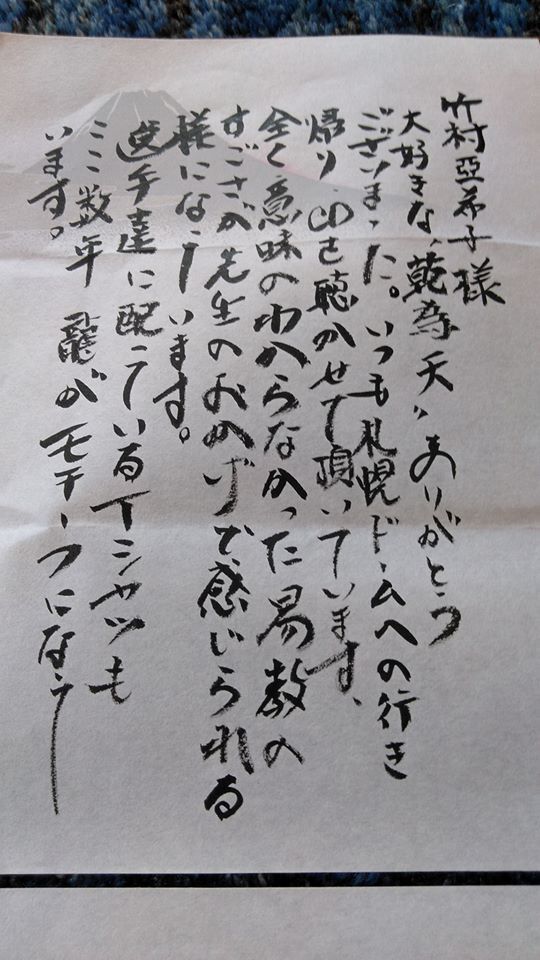 竹村亞希子様
大好きな〝乾為天〟ありがとう
ございました。いつも札幌ドームへの行き
帰り、CDを聴かせて頂いています、
全く意味のわからなかった易教の
すごさが先生のおかげで感じられる
様になっています。
選手達に配っているTシャツも
ここ数年 龍がモチーフになって
います。